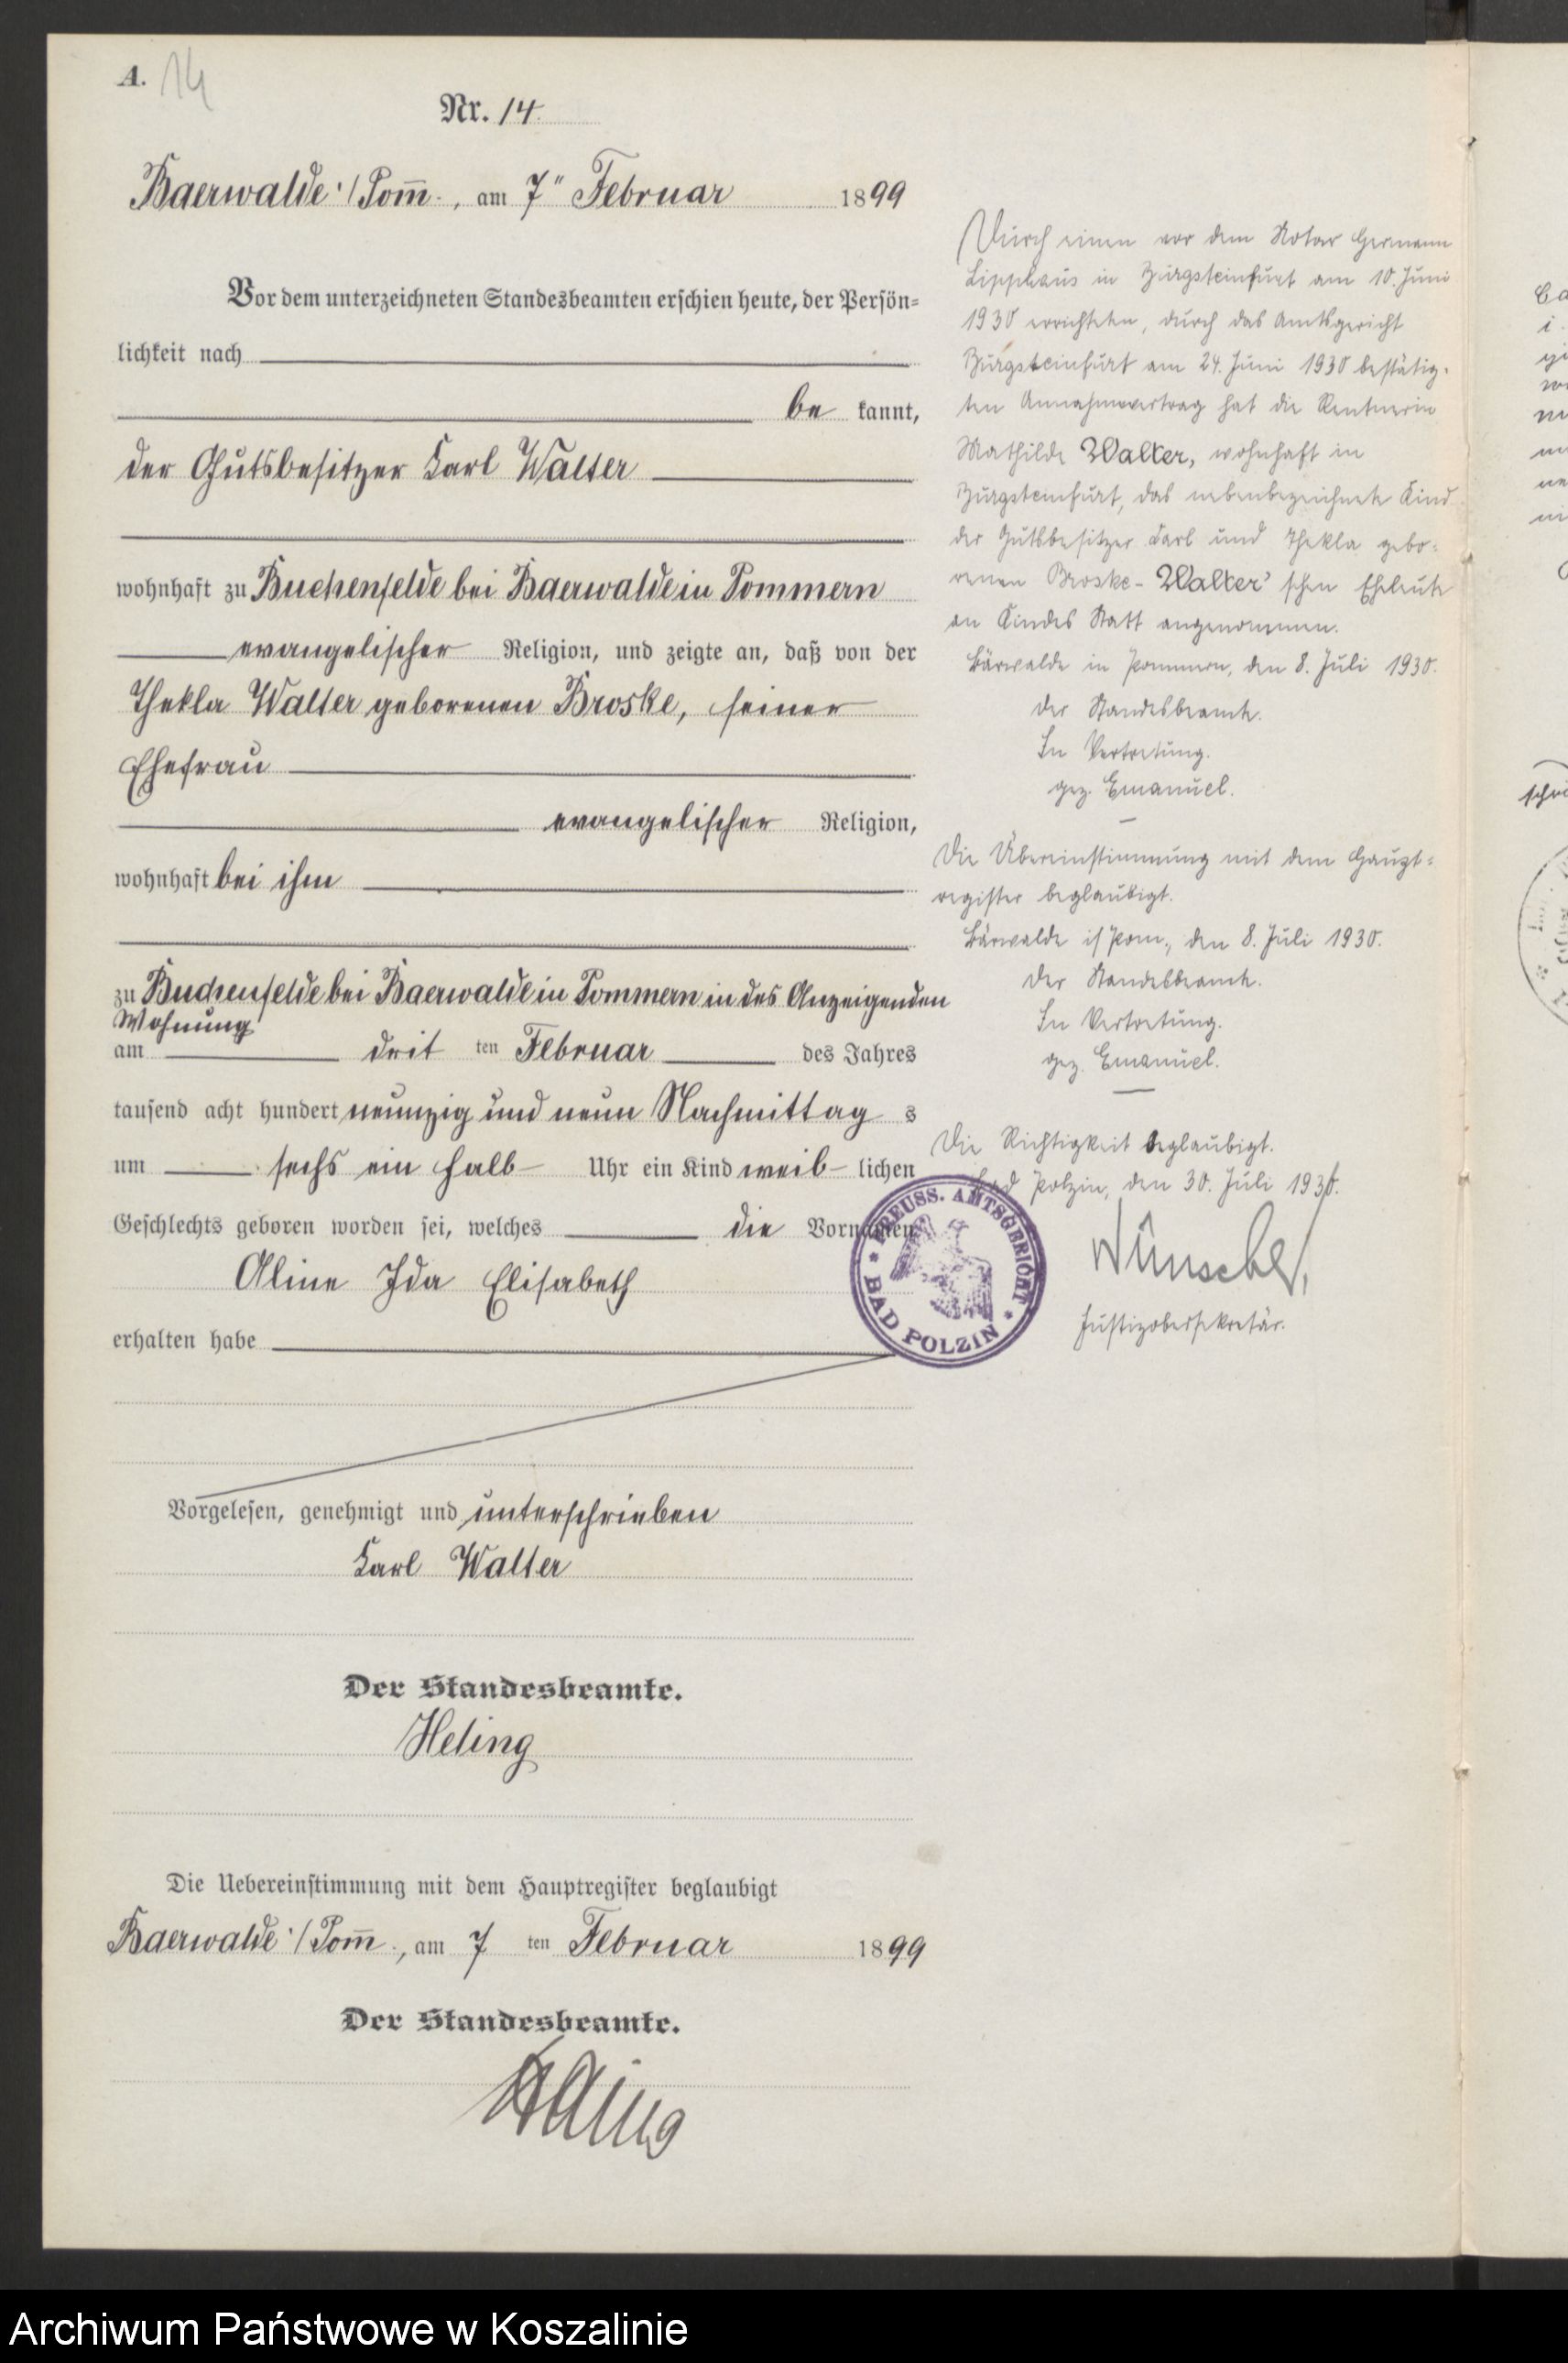 A. 14
Nr. 14.
Baerwalde i/Pom̅., am 7" Februar 1899
Vor dem unterzeichneten Standesbeamten erschien heute, der Persön=
lichkeit nach
be kannt,
der Gutsbesitzer Karl Walter
wohnhaft zu Buchenfelde bei Baerwalde in Pommern
evangelischer Religion, und zeigte an, daß von der
Thekla Walter geborenen Broske, seiner
Ehefrau
evangelischer Religion,
wohnhaft bei ihm
zu Buchenfelde bei Baerwalde in Pommern in des Anzeigenden
Wohnung
am drit ten Februar des Jahres
tausend acht hundert neunzig und neun Nachmittag s
um sechs ein halb Uhr ein Kind weib- lichen
Geschlechts geboren worden sei, welches die Vornamen
Aline Ida Elisabeth
erhalten habe
Vorgelesen, genehmigt und unterschrieben
Karl Walter
Der Standesbeamte.
Heling
Die Uebereinstimmung mit dem Hauptregister beglaubigt
Baerwalde i/Pom̅., am 7 ten Februar 1899
Der Standesbeamte.
Heling
Durch einen vor dem Notar Hermann
Lipphaus in Burgsteinfurt am 10. Juni
1930 errichteten, durch das Amtsgericht
Burgsteinfurt am 24. Juni 1930 bestätig-
ten Annahmevertrag hat die Rentnerin
Mathilde Walter, wohnhaft in
Burgsteinfurt, das nebenbezeichnete Kind
der Gutsbesitzer Karl und Thekla gebo-
renen Broske-Walter'schen Eheleute
an Kindes Statt angenommen.
Bärwalde in Pommern, den 8. Juli 1930.
Der Standesbeamte.
In Vertretung.
gez. Emanuel.
Die Übereinstimmung mit dem Haupt-
register beglaubigt.
Bärwalde i/Pom., den 8. Juli 1930.
Der Standesbeamte.
In Vertretung.
gez. Emanuel.
Die Richtigkeit beglaubigt.
Bad Polzin, den 30. Juli 1930.
Wünscher,
Justizobersekretär.
PREUSS. AMTSGERICHT * BAD POLZIN *
Archiwum Państwowe w Koszalinie